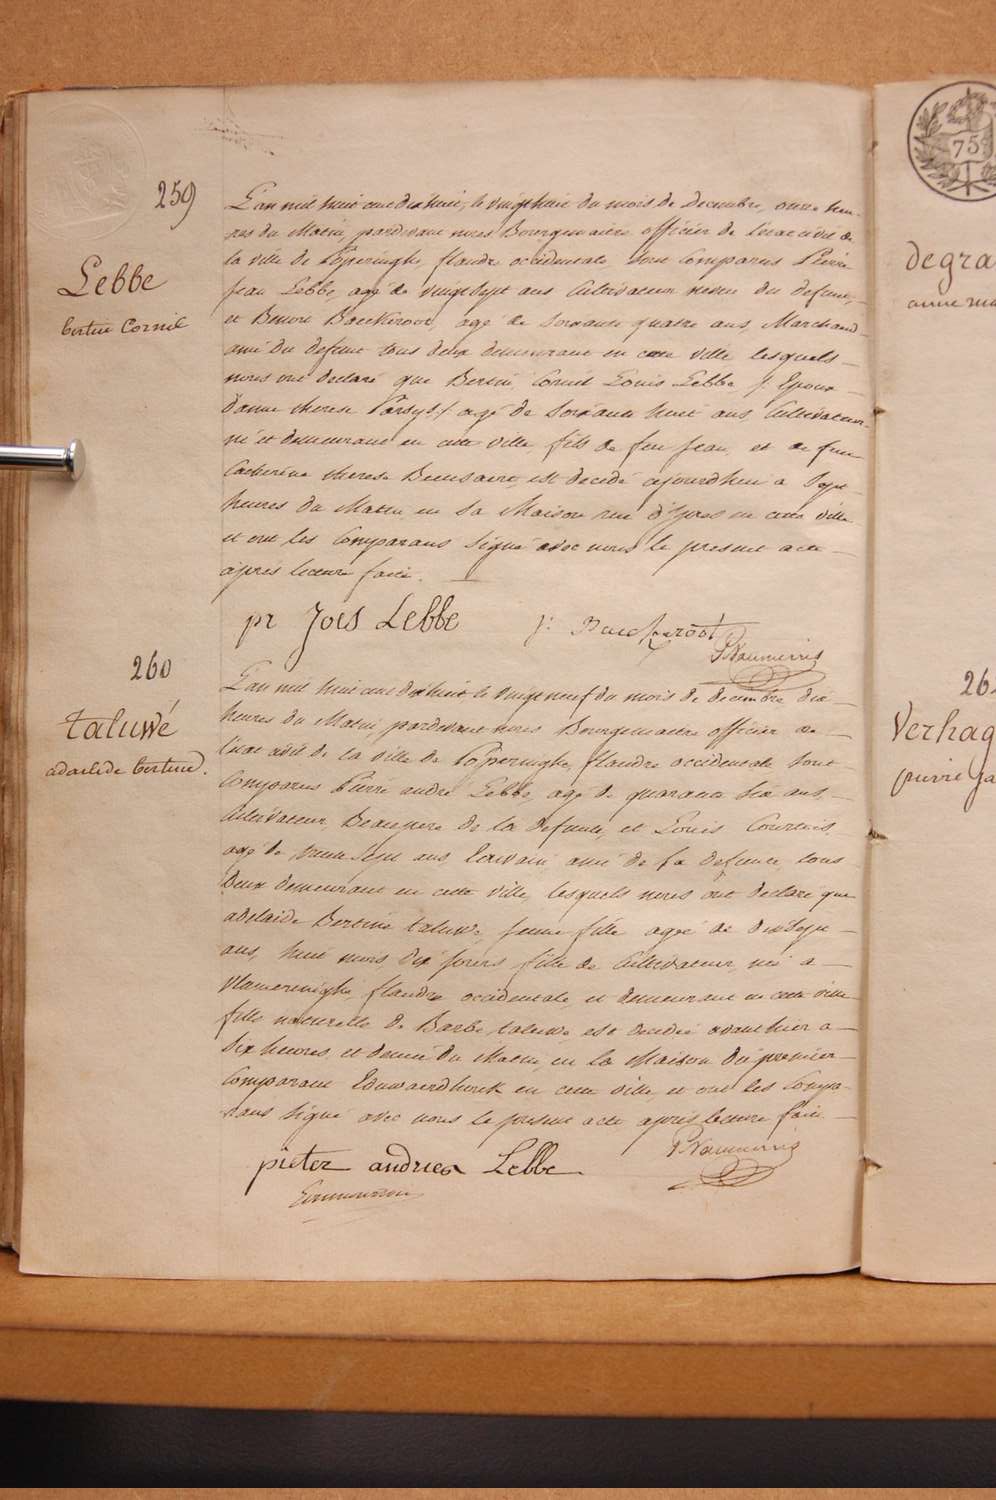 259
Lebbe
bertin Cornil
L'an mil huit cent dixhuit, le vingthuit du mois de decembre, onze heu-
res du Matin, pardevant nous Bourguemaitre officier de l'etat civil de
la ville de Poperinghe, flandre occidentale, sont Comparus Pierre
Jean Lebbe, agé de vingtsept ans Cultivateur neveu du defunt,
et Benoit Baeckeroot, agé de soixante quatre ans, Marchand
ami du defunt tous deux demeurant en cette ville lesquels
nous ont declaré que Bertin Cornil Louis Lebbe /: Epoux
d'anne therese Parsys :/ agé de soixante huit ans, Cultivateur
né et demeurant en cette ville, fils de feu Jean, et de feue
Catherine therese Beunaert, est decedé ajourdheu a sept
heures du Matin, en sa Maison rue d'ypres en cette ville
et ont les Comparans signé avec nous le present acte
après lecture faite.
pr Jois Lebbe
J: Baeckeroot
260
taluwé
adaileide bertine.
L'an mil huit cent dixhuit le vingt neuf du mois de decembre dix
heures du Matin, pardevant nous Bourguemaitre officier de
l'etat civil de la ville de Poperinghe, flandre occidentale sont
Comparus Pierre andré Lebbe agé de quarante six ans,
Cultivateur, Beaupere de la defunte, et Louis Courtois,
agé de trente sept ans Ecrivain, ami de la defunte, tous
deux demeurant en cette ville, lesquels nous ont declare que
adelaide Bertine taluwe, jeune fille agé de dixsept
ans, huit mois, dix jours, fille de Cultivateur, née a
Vlamertinghe flandre occidentale, et demeurant en cette ville
fille naturelle de Barbe taluwe, est decedé avanthier a
six heures, et demie du Matin, en la Maison du premier
Comparant Eduwaerdhoek en cette ville, et ont les Compa-
rans signé avec nous le present acte après lecture faite
pieter andries Lebbe
75
degra
anne ma
26
Verhag
pierre ja